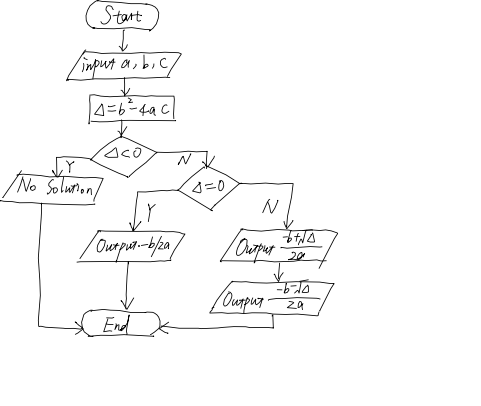 Start
input a, b, c
Δ=b²-4ac
Δ<0
Y
N
No Solution
Δ=0
Y
N
Output -b/2a
Output -b+√Δ/2a
Output -b-√Δ/2a
End